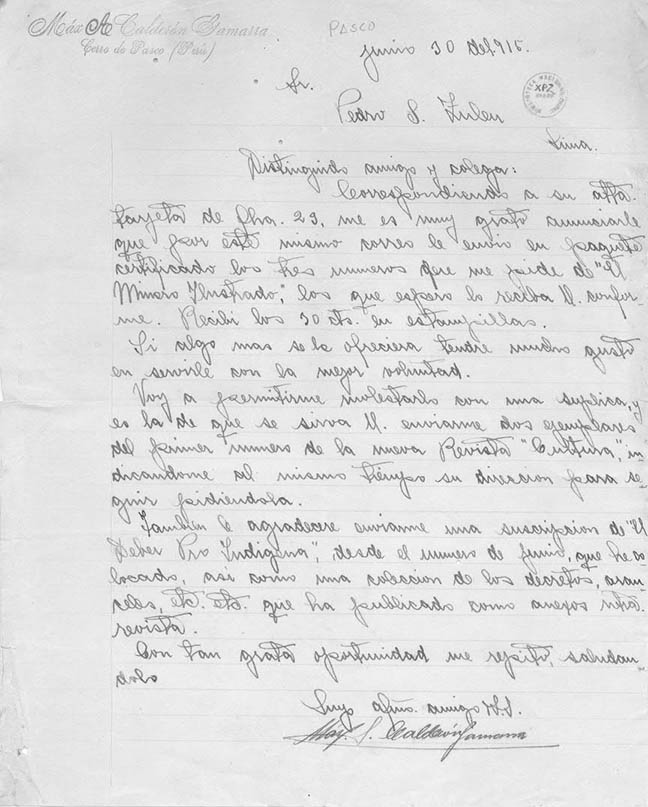 Máx A Calderón Gamarra
Cerro de Pasco (Perú)
PASCO
junio 30 de 1915.
Sr.
Pedro S. Zulen
Lima.
Distinguido amigo y colega:
Correspondiendo a su atta.
tarjeta de fha. 23, me es muy grato anunciarle
que por este mismo correo le envio en paquete
certificado los tres numeros que me pide de "El
Minero Ilustrado", los que espero lo reciba U. confor-
me. Recibi los 30 cts. en estampillas.
Si algo mas se le ofreciera tendre mucho gusto
en servirle con la mejor voluntad.
Voy a permitirme molestarlo con una suplica, y
es la de que se sirva U. enviarme dos ejemplares
del primer numero de la nueva Revista "Cultura", in
dicandome al mismo tiempo su direccion para se-
guir pidiendola.
Tambien le agradecere enviarme una suscripcion de "El
Deber Pro Indigena", desde el numero de junio, que he co
locado, asi como una coleccion de los decretos, aran-
celes, etc. etc. que ha publicado como anexos
revista.
Con tan grata oportunidad me repito, saludan-
dolo
Suyo afmo. amigo S.S.
Max. S. Calderón Gamarra